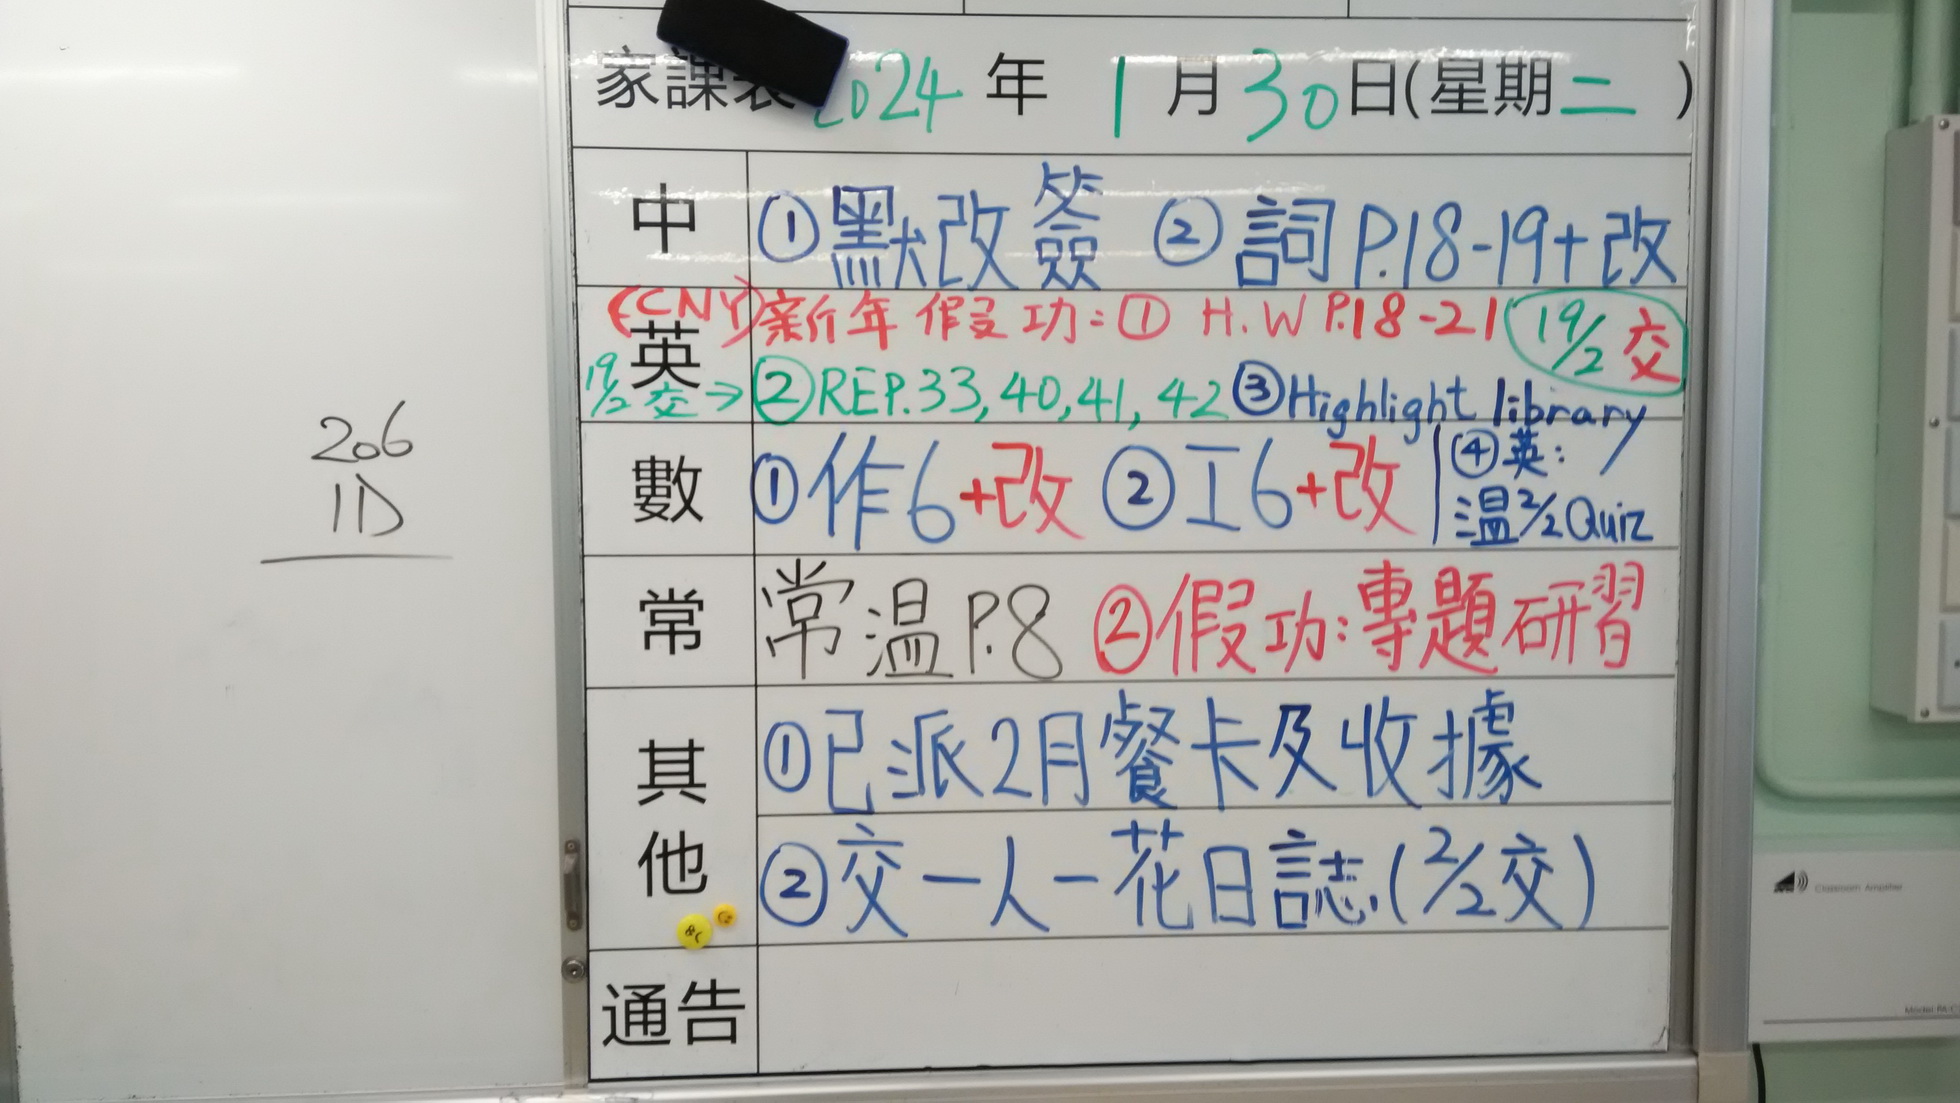 206
1D
家課表 2024 年 1 月 30 日(星期 二 )
中 ①默改簽 ②詞P.18-19+改
(CNY)新年假功:① H.W P.18-21 19/2 交
英
19/2 交→ ②REP.33,40,41,42 ③Highlight library
數 ①作6+改 ②工6+改 ④英:
温2/2Quiz
常 常温P.8 ②假功:專題研習
其他 ①已派2月餐卡及收據
②交一人一花日誌.(2/2交)
通告
Classroom Amplifier